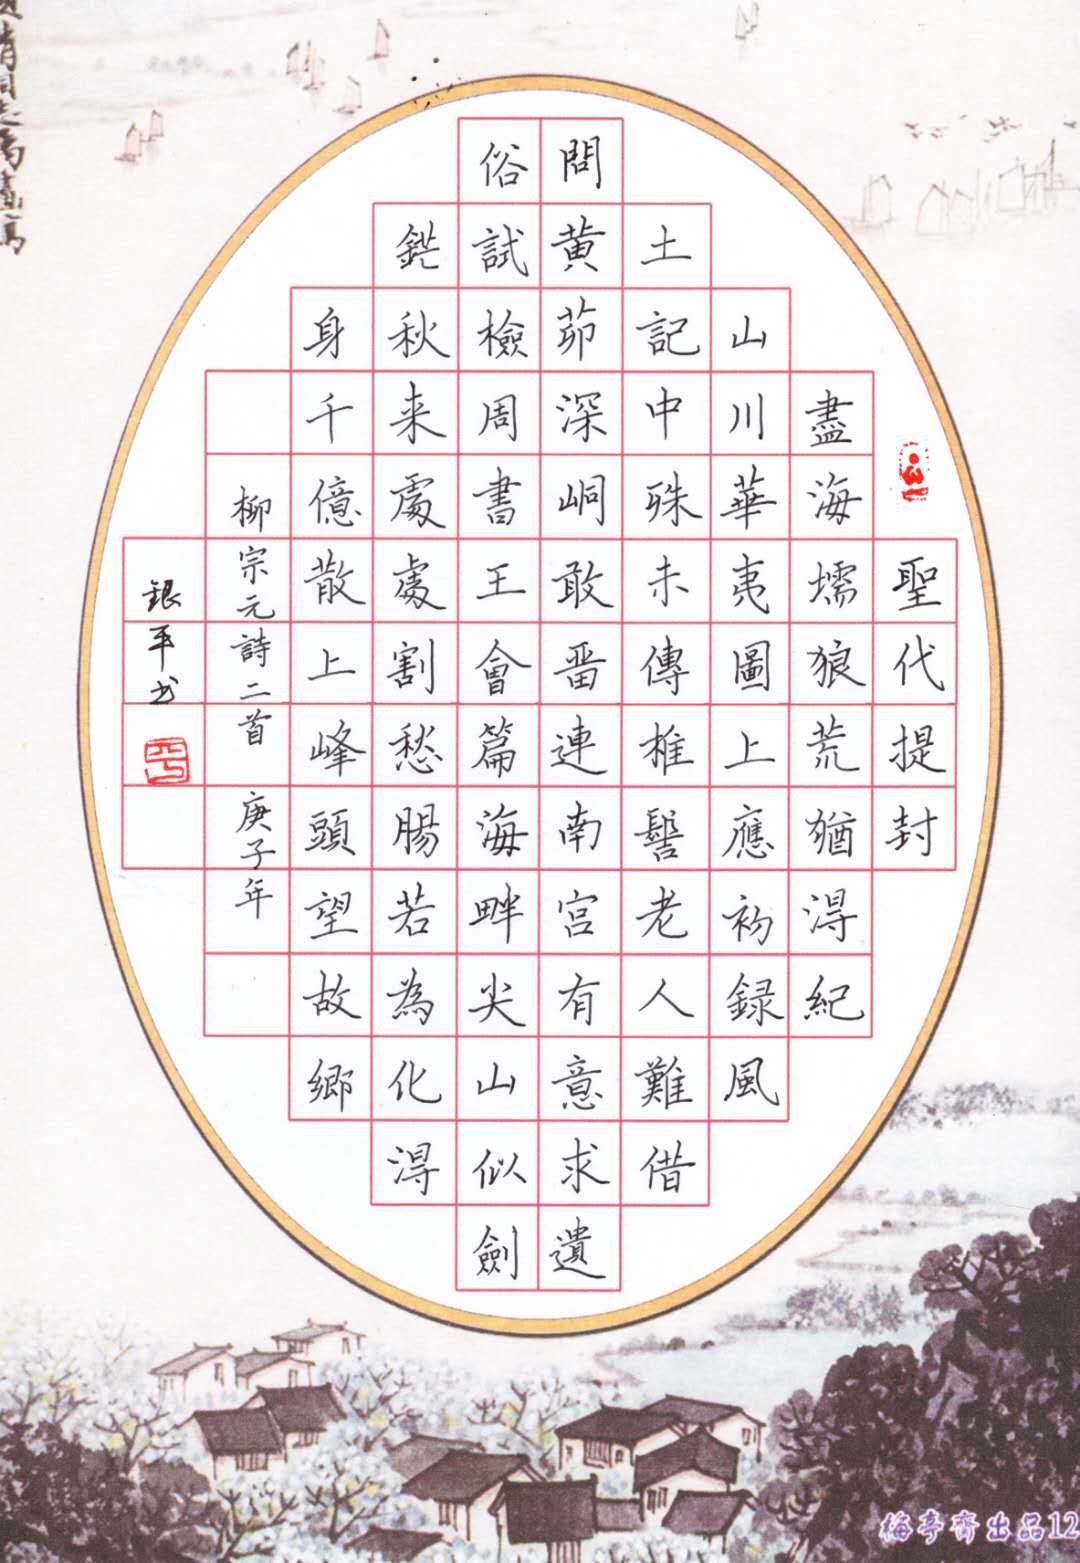 聖代提封
盡海壖狼荒猶淂紀
山川華夷圖上應初録風
土記中殊未傳椎髻老人難借
問黄茆深峒敢畱連南宫有意求遺
俗試檢周書王會篇海畔尖山似劍
鋩秋来處處割愁腸若為化淂
身千億散上峰頭望故鄉
柳宗元詩二首 庚子年
銀平书
梅亭齊出品12